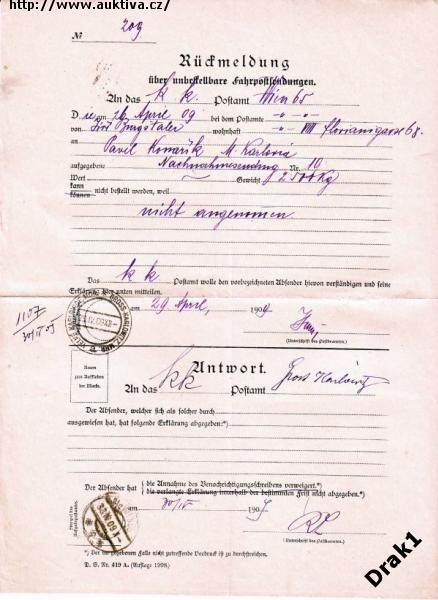 http://www.auktiva.cz/
№ 209
Rückmeldung
über unbestellbare Fahrpostsendungen.
An das k. k. Postamt Wien 65
D ie am 26 April 09 bei dem Postamte
von wohnhaft VIII Floriangasse 68.
an Pavel M Karlovic
aufgegebene Nachnahmesendung Nr. 10
Wert Gewicht 2 500 Kg
kann
können nicht bestellt werden, weil
nicht angenommen
Das k k Postamt wolle den vorbezeichneten Absender hievon verständigen und seine
Erklärung hier unten mitteilen.
am 29 April, 1909
1107
(Unterschrift des Postbeamten.)
Antwort.
Raum
zum Aufkleben
der Marke.
An das kk Postamt Gross Karlowitz
Der Absender, welcher sich als solcher durch
ausgewiesen hat, hat folgende Erklärung abgegeben:*)
Der Absender hat (die Annahme des Benachrichtigungsschreibens verweigert.*)
(die verlangte Erklärung innerhalb der bestimmten Frist nicht abgegeben.*)
am 30/IV 1909
(Unterschrift des Postbeamten.)
*) Der im gegebenen Falle nicht zutreffende Vordruck ist zu durchstreichen.
D. S. Nr. 419 A. (Auflage 1908.)
Drak1